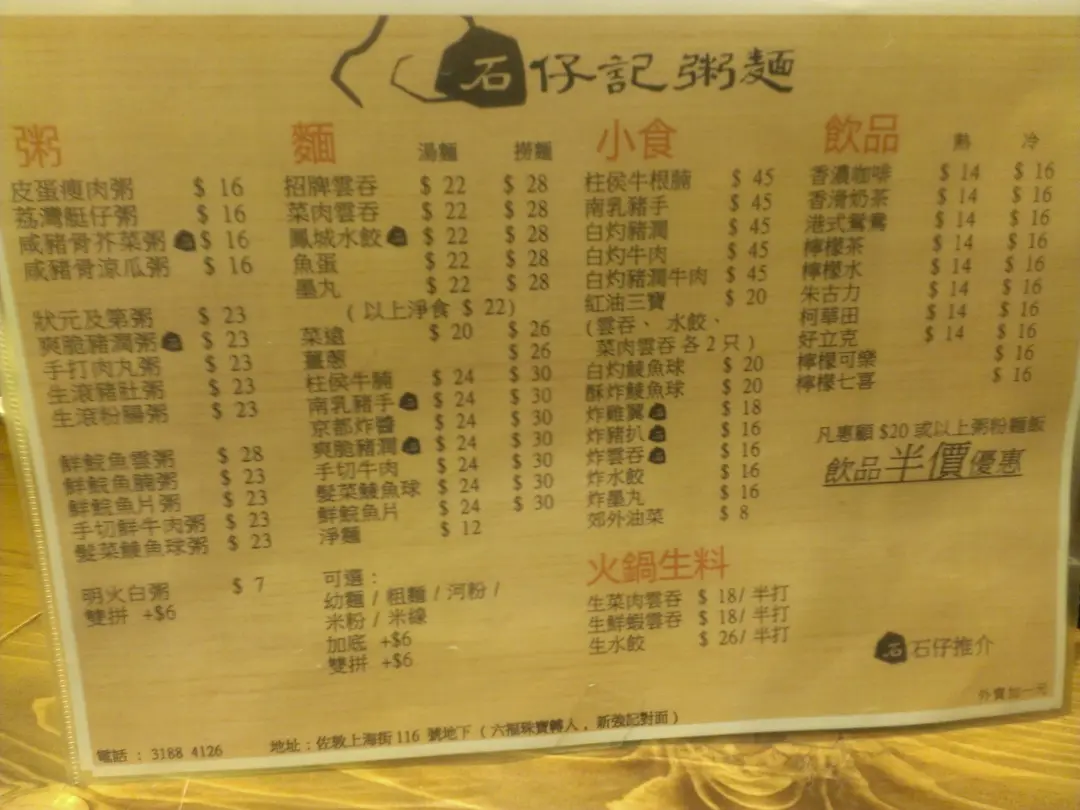 石仔記粥麵
粥
皮蛋瘦肉粥 $ 16
荔灣艇仔粥 $ 16
咸豬骨芥菜粥 $ 16
咸豬骨涼瓜粥 $ 16
狀元及第粥 $ 23
爽脆豬潤粥 $ 23
手打肉丸粥 $ 23
生滾豬肚粥 $ 23
生滾粉腸粥 $ 23
鮮鯇魚雲粥 $ 28
鮮鯇魚腩粥 $ 23
鮮鯇魚片粥 $ 23
手切鮮牛肉粥 $ 23
髮菜鯪魚球粥 $ 23
明火白粥 $ 7
雙拼 +$6
麵 湯麵 撈麵
招牌雲吞 $ 22 $ 28
菜肉雲吞 $ 22 $ 28
鳳城水餃 $ 22 $ 28
魚蛋 $ 22 $ 28
墨丸 $ 22 $ 28
( 以上淨食 $ 22 )
菜遠 $ 20 $ 26
薑蔥 $ 26
柱侯牛腩 $ 24 $ 30
南乳豬手 $ 24 $ 30
京都炸醬 $ 24 $ 30
爽脆豬潤 $ 24 $ 30
手切牛肉 $ 24 $ 30
髮菜鯪魚球 $ 24 $ 30
鮮鯇魚片 $ 24 $ 30
淨麵 $ 12
可選 :
幼麵 / 粗麵 / 河粉 /
米粉 / 米線
加底 +$6
雙拼 +$6
小食
柱侯牛根腩 $ 45
南乳豬手 $ 45
白灼豬潤 $ 45
白灼牛肉 $ 45
白灼豬潤牛肉 $ 45
紅油三寶 $ 20
(雲吞、水餃、
菜肉雲吞 各 2 只 )
白灼鯪魚球 $ 20
酥炸鯪魚球 $ 20
炸雞翼 $ 18
炸豬扒 $ 16
炸雲吞 $ 16
炸水餃 $ 16
炸墨丸 $ 16
郊外油菜 $ 8
火鍋生料
生菜肉雲吞 $ 18/ 半打
生鮮蝦雲吞 $ 18/ 半打
生水餃 $ 26/ 半打
飲品 熱 冷
香濃咖啡 $ 14 $ 16
香滑奶茶 $ 14 $ 16
港式鴛鴦 $ 14 $ 16
檸檬茶 $ 14 $ 16
檸檬水 $ 14 $ 16
朱古力 $ 14 $ 16
柯華田 $ 14 $ 16
好立克 $ 14 $ 16
檸檬可樂 $ 16
檸檬七喜 $ 16
凡惠顧 $20 或以上粥粉麵飯
飲品半價優惠
石 石仔推介
外賣加一元
電話 : 3188 4126
地址 : 佐敦上海街 116 號地下 ( 六福珠寶轉入 , 新強記對面 )